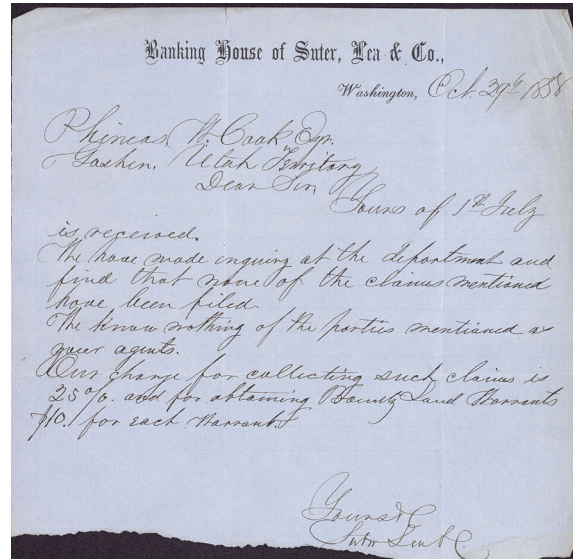 Banking House of Suter, Lea & Co.,
Washington, Oct. 29th 1858
Phineas W. Cook Esqr.
Goshin. Utah Territory
Dear Sir,
Yours of 1st July
is received.
We have made inquiry at the department and
find that none of the claims mentioned
have been filed.
We know nothing of the parties mentioned as
your agents.
Our charge for collecting such claims is
25%. and for obtaining Bounty Land Warrants
$10. for each Warrant.
Yours &c
Suter Lea & Co